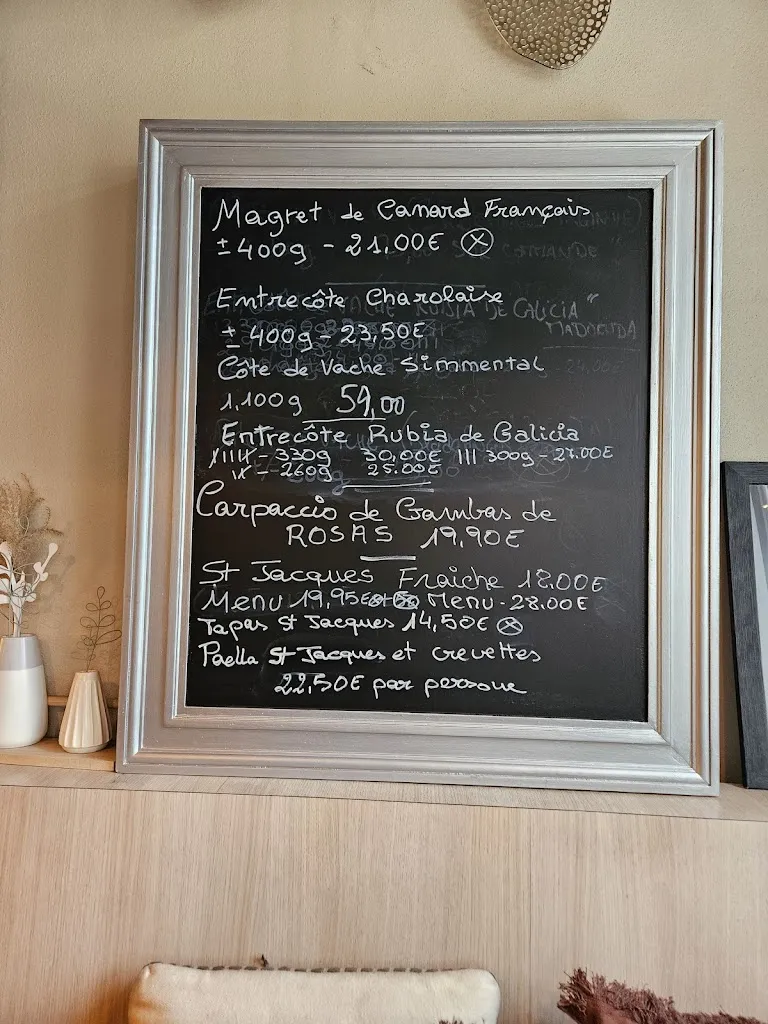 Magret de Canard Français
± 400g - 21,00€ ⊗
Entrecôte Charolaise
± 400g - 23,50€
Côte de Vache Simmental
1,100g 59,00
Entrecôte Rubia de Galicia
- 330g 30,00€ III 300g - 27.00€
- 260g 25.00€
Carpaccio de Gambas de
ROSAS 19,90€
St Jacques Fraiche 18.00€
Menu 19,95€ Menu - 28.00€
Tapas St Jacques 14,50€ ⊗
Paella St Jacques et crevettes
22,50€ par persoue